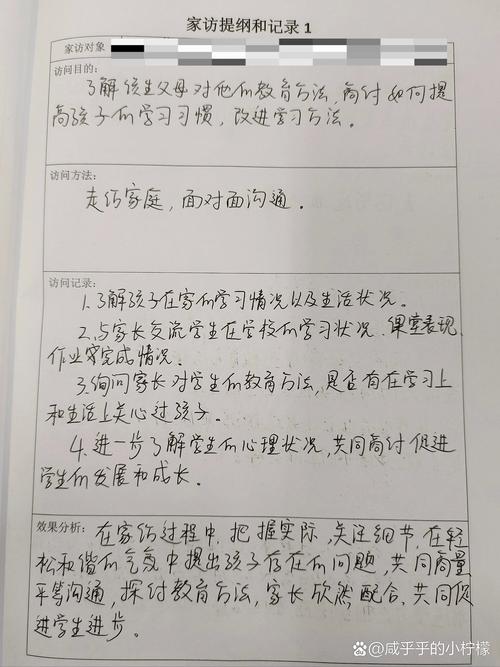 家访提纲和记录1
家访对象
访问目的:
了解该生父母对他们教育方法,商讨如何提
高孩子们学习习惯,改进学习方法。
访问方法:
走访家庭,面对面沟通。
访问记录:
1.了解孩子在家的学习情况以及生活状况。
2.与家长交流学生在学校的学习状况.课堂表现
作业等完成情况。
3.询问家长对学生的教育方法,是否有在学习上
和生活上关心过孩子.
4.进一步了解学生的心理状况,共同商讨促进
学生的发展和成长.
效果分析:在家访过程中,把握实际,关注细节,在轻
松和谐的气氛中提出孩子存在的问题,共同商量
平等沟通,探讨教育方法,家长欣然配合,共同促
进学生进步。
@咸乎乎的小柠檬